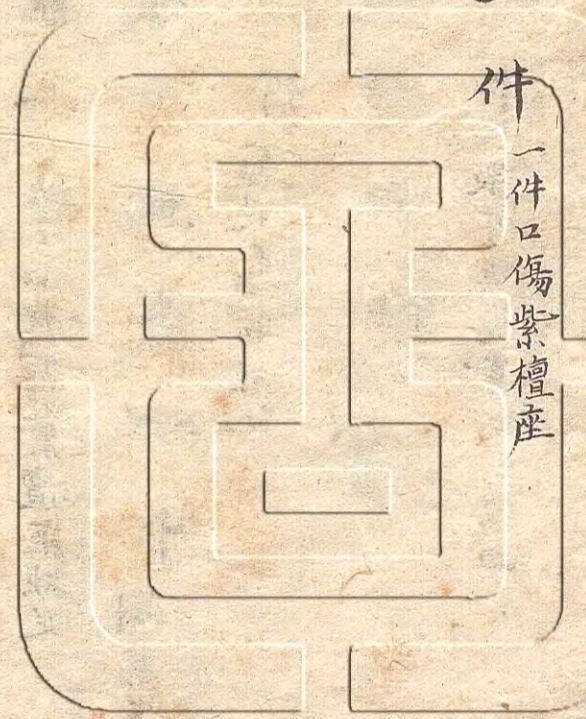 件一件口傷紫檀座